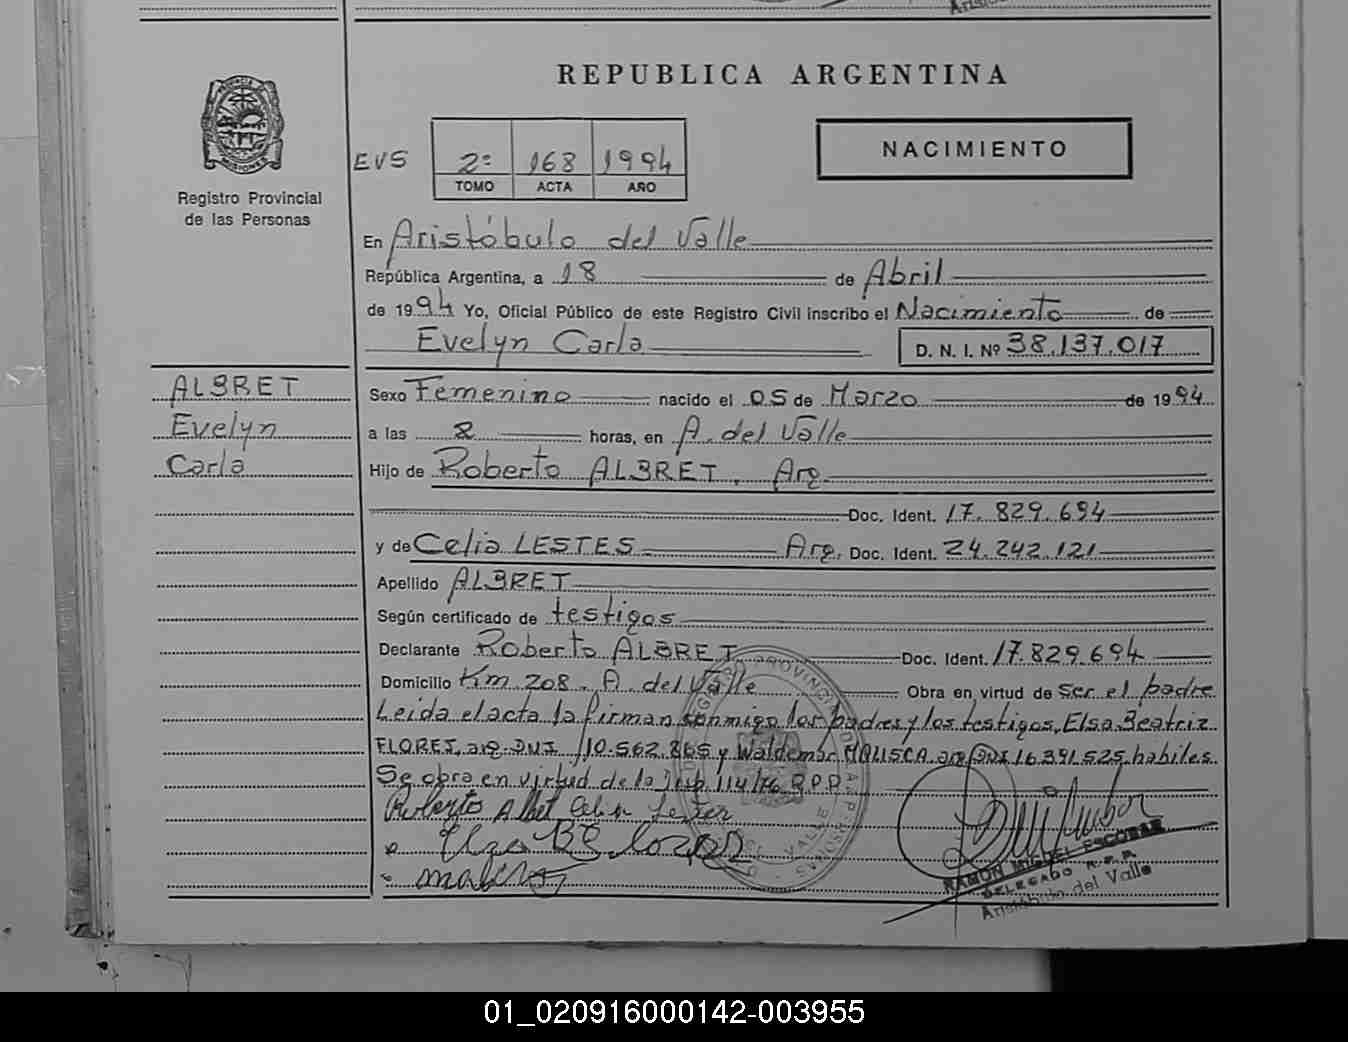 REPUBLICA ARGENTINA
PROVINCIA
MISIONES
Registro Provincial
de las Personas
EVS
2º 168 1994
TOMO ACTA AÑO
NACIMIENTO
En Aristóbulo del Valle
República Argentina, a 18 de Abril
de 1994 Yo, Oficial Público de este Registro Civil inscribo el Nacimiento de
Evelyn Carla D. N. I. Nº 38.137.017
ALBRET
Evelyn
Carla
Sexo Femenino nacido el 05 de Marzo de 1994
a las 8 horas, en A. del Valle
Hijo de Roberto ALBRET, Arg.
Doc. Ident. 17.829.694
y de Celia LESTES Arg. Doc. Ident. 24.242.121
Apellido ALBRET
Según certificado de testigos
Declarante Roberto ALBRET Doc. Ident. 17.829.694
Domicilio Km 208. A. del Valle Obra en virtud de Ser el padre
Leída el acta la firman conmigo los padres y los testigos, Elsa Beatriz
FLORES, arg. DNI 10.562.865 y Waldemar arg. DNI 16.391.525 habiles.
Se obra en virtud de la R.P.P.
Roberto Albret Celia Lestes
RAMON MIGUEL ESCOBAR
DELEGADO R.P.P.
Aristóbulo del Valle
01_020916000142-003955